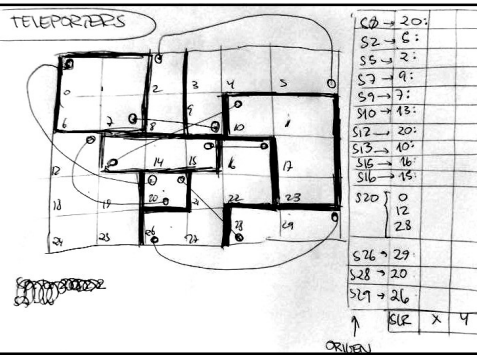 TELEPORTERS
0 2 3 4 5
6 7 8 9 10
12 14 15 16 17
18 19 20 22 23
24 25 26 27 28 29
S0 → 20:
S2 → 5:
S5 → 2:
S7 → 9:
S9 → 7:
S10 → 13:
S12 → 20:
S13 → 10:
S15 → 16:
S16 → 15:
S20 { 0
12
28
S26 → 29:
S28 → 20
S29 → 26:
SCR X Y
ORIGEN